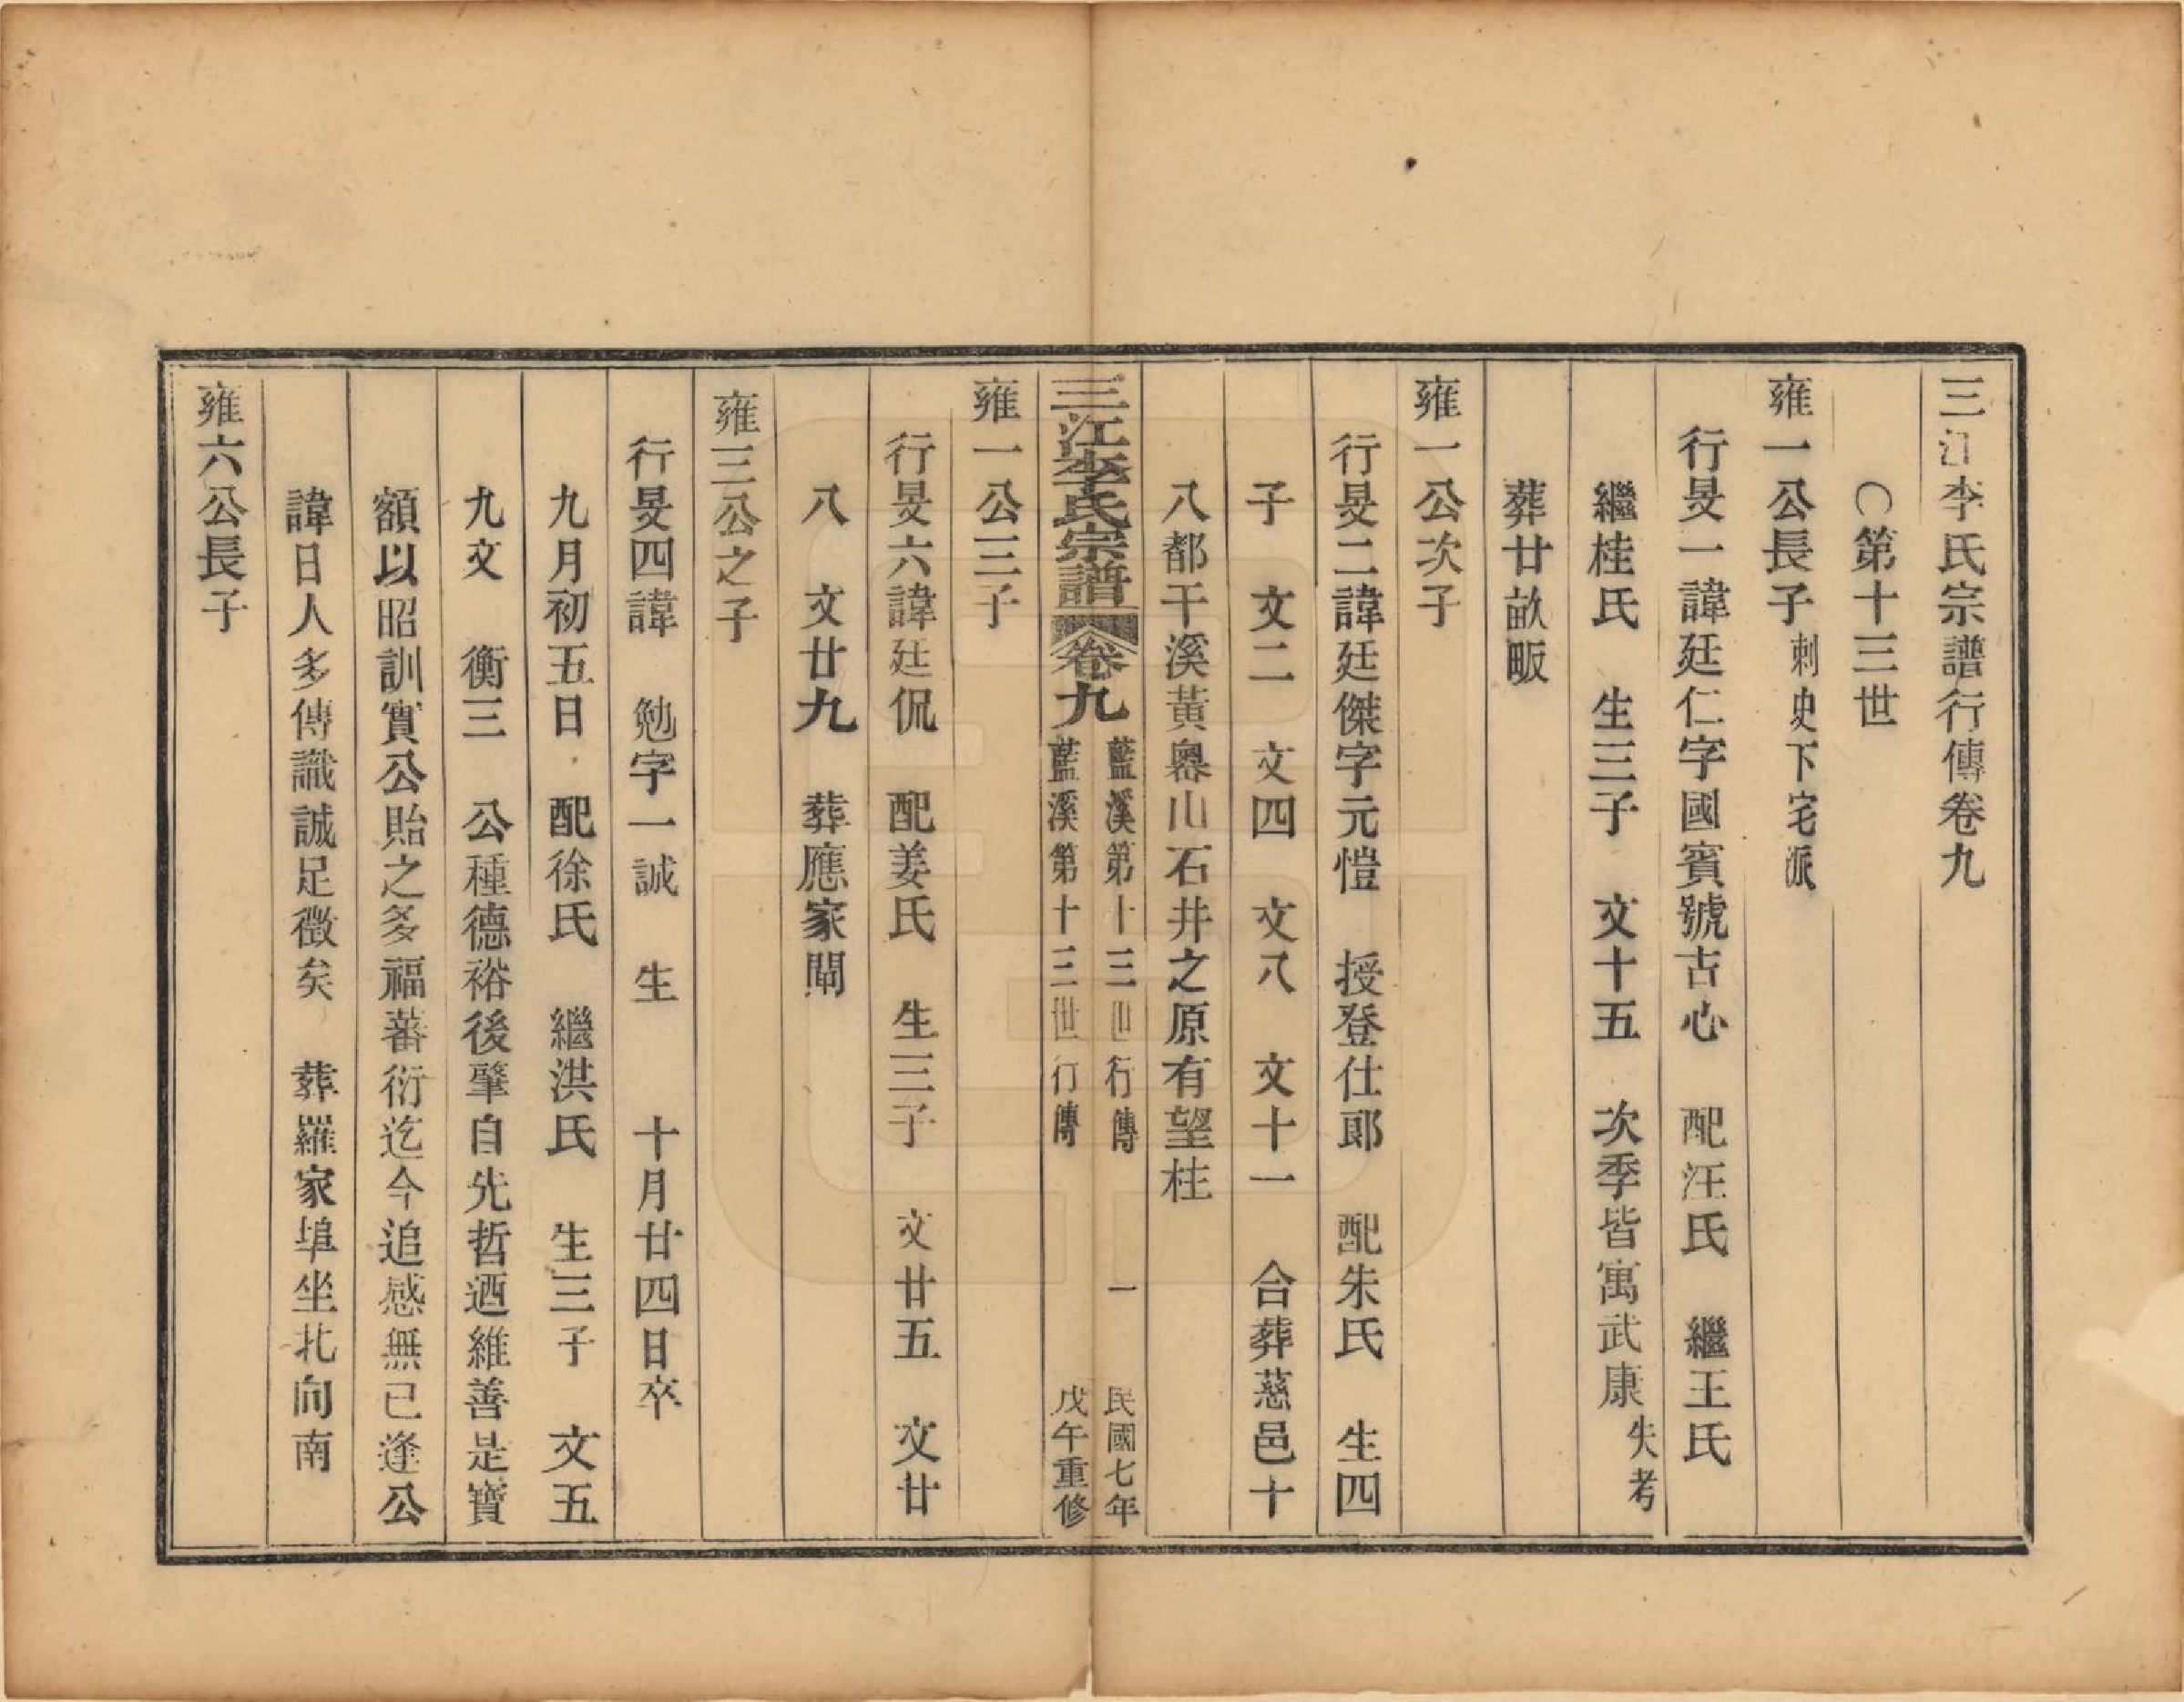 三江李氏宗譜行傳卷九
〇第十三世
雍一公長子 刺史下宅派
行旻一諱廷仁字國賓號古心 配汪氏 繼王氏
繼桂氏 生三子 文十五 次季皆寓武康 失考
葬廿畝畈
雍一公次子
行旻二諱廷傑字元愷 授登仕郎 配朱氏 生四
子 文二 文四 文八 文十一 合葬慈邑十
八都干溪黃㠗山石井之原有望柱
三江李氏宗譜 卷九 藍溪第十三世行傳 一 民國七年
藍溪第十三世行傳 戊午重修
雍一公三子
行旻六諱廷侃 配姜氏 生三子 文廿五 文廿
八 文廿九 葬應家閘
雍三公之子
行旻四諱 勉字一誠 生 十月廿四日卒
九月初五日 配徐氏 繼洪氏 生三子 文五
九文 衡三 公種德裕後肇自先哲迺維善是寶
額以昭訓實公貽之多福蕃衍迄今追感無已逢公
諱日人多傳識誠足徵矣 葬羅家埠坐北向南
雍六公長子